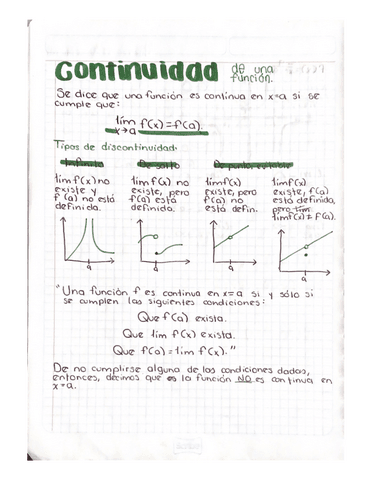 Continuidad de una
función.
Se dice que una función es continua en x=a si se
cumple que:
lím f(x)=f(a).
x→a
Tipos de discontinuidad:
Infinita De salto De punto, evitable
lím f(x) no
existe y
f(a) no está
definida.
lím f(x) no
existe, pero
f(a) está
definida.
lím f(x)
existe, pero
f(a) no está
defin.
lím f(x)
existe, f(a)
está definida,
pero lím
lím f(x) ≠ f(a).
a a a a
"Una función f es continua en x=a si y sólo si
se cumplen las siguientes condiciones:
Que f(a) exista.
Que lím f(x) exista.
Que f(a)=lím f(x)."
De no cumplirse alguna de las condiciones dadas,
entonces, decimos que es la función NO es continua en
x=a.